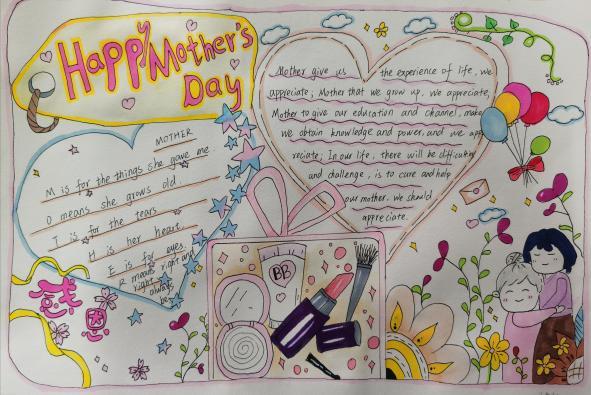 Happy Mother's
Day
MOTHER
M is for the things she gave me.
O means she grows old.
T is for the tears
H is her heart.
E is for eyes.
R means right and
right
always
be
Mother give us the experience of life, we
appreciate; Mother that we grow up, we appreciate,
Mother to give our education and channel, make
we obtain knowledge and power, and we app
reciate; In our life, there will be difficulties
and challenge, is to care and help
our mother. we should
appreciate.
感
恩
BB